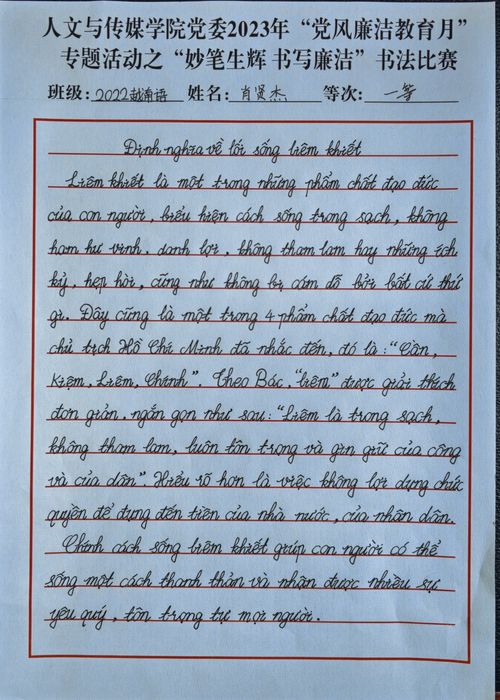 人文与传媒学院党委2023年“党风廉洁教育月”
专题活动之“妙笔生辉 书写廉洁”书法比赛
班级：2022越南语 姓名：肖贤杰 等次：一等
Định nghĩa về lối sống liêm khiết
Liêm khiết là một trong những phẩm chất đạo đức
của con người, biểu hiện cách sống trong sạch, không
ham hư vinh, danh lợi, không tham lam hay những ích
kỷ, hẹp hòi, cũng như không bị cám dỗ bởi bất cứ thứ
gì. Đây cũng là một trong 4 phẩm chất đạo đức mà
chủ tịch Hồ Chí Minh đã nhắc đến, đó là: “Cần,
Kiệm, Liêm, Chính”. Theo Bác, “liêm” được giải thích
đơn giản, ngắn gọn như sau: “Liêm là trong sạch,
không tham lam, luôn tôn trọng và gìn giữ của công
và của dân”. Hiểu rõ hơn là việc không lợi dụng chức
quyền để đụng đến tiền của nhà nước, của nhân dân.
Chính cách sống liêm khiết giúp con người có thể
sống một cách thanh thản và nhận được nhiều sự
yêu quý, tôn trọng từ mọi người.